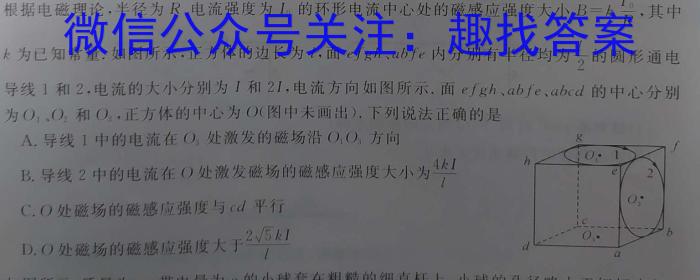 根据电磁理论,半径为R、电流强度为I₀的环形电流中心处的磁感应强度大小B=k,其中
微信公众号关注:趣找答案
k为已知常量.如图所示,正方体的边长为l,面efgh、abfe内分别有半径均为 2 的圆形通电
导线1和2,电流的大小分别为I和2I,电流方向如图所示.面efgh、abfe、abcd的中心分别
为O₁、O₂和O₃,正方体的中心为O(图中未画出).下列说法正确的是
A.导线1中的电流在O₃处激发的磁场沿O₁O₃方向
B.导线2中的电流在O处激发磁场的磁感应强度大小为4kI/l
C.O处磁场的磁感应强度与cd平行
D.O处磁场的磁感应强度大于2√5kI/l
g
f
O₁
1
h
e
2
O₂
c
b
O₃
d
a